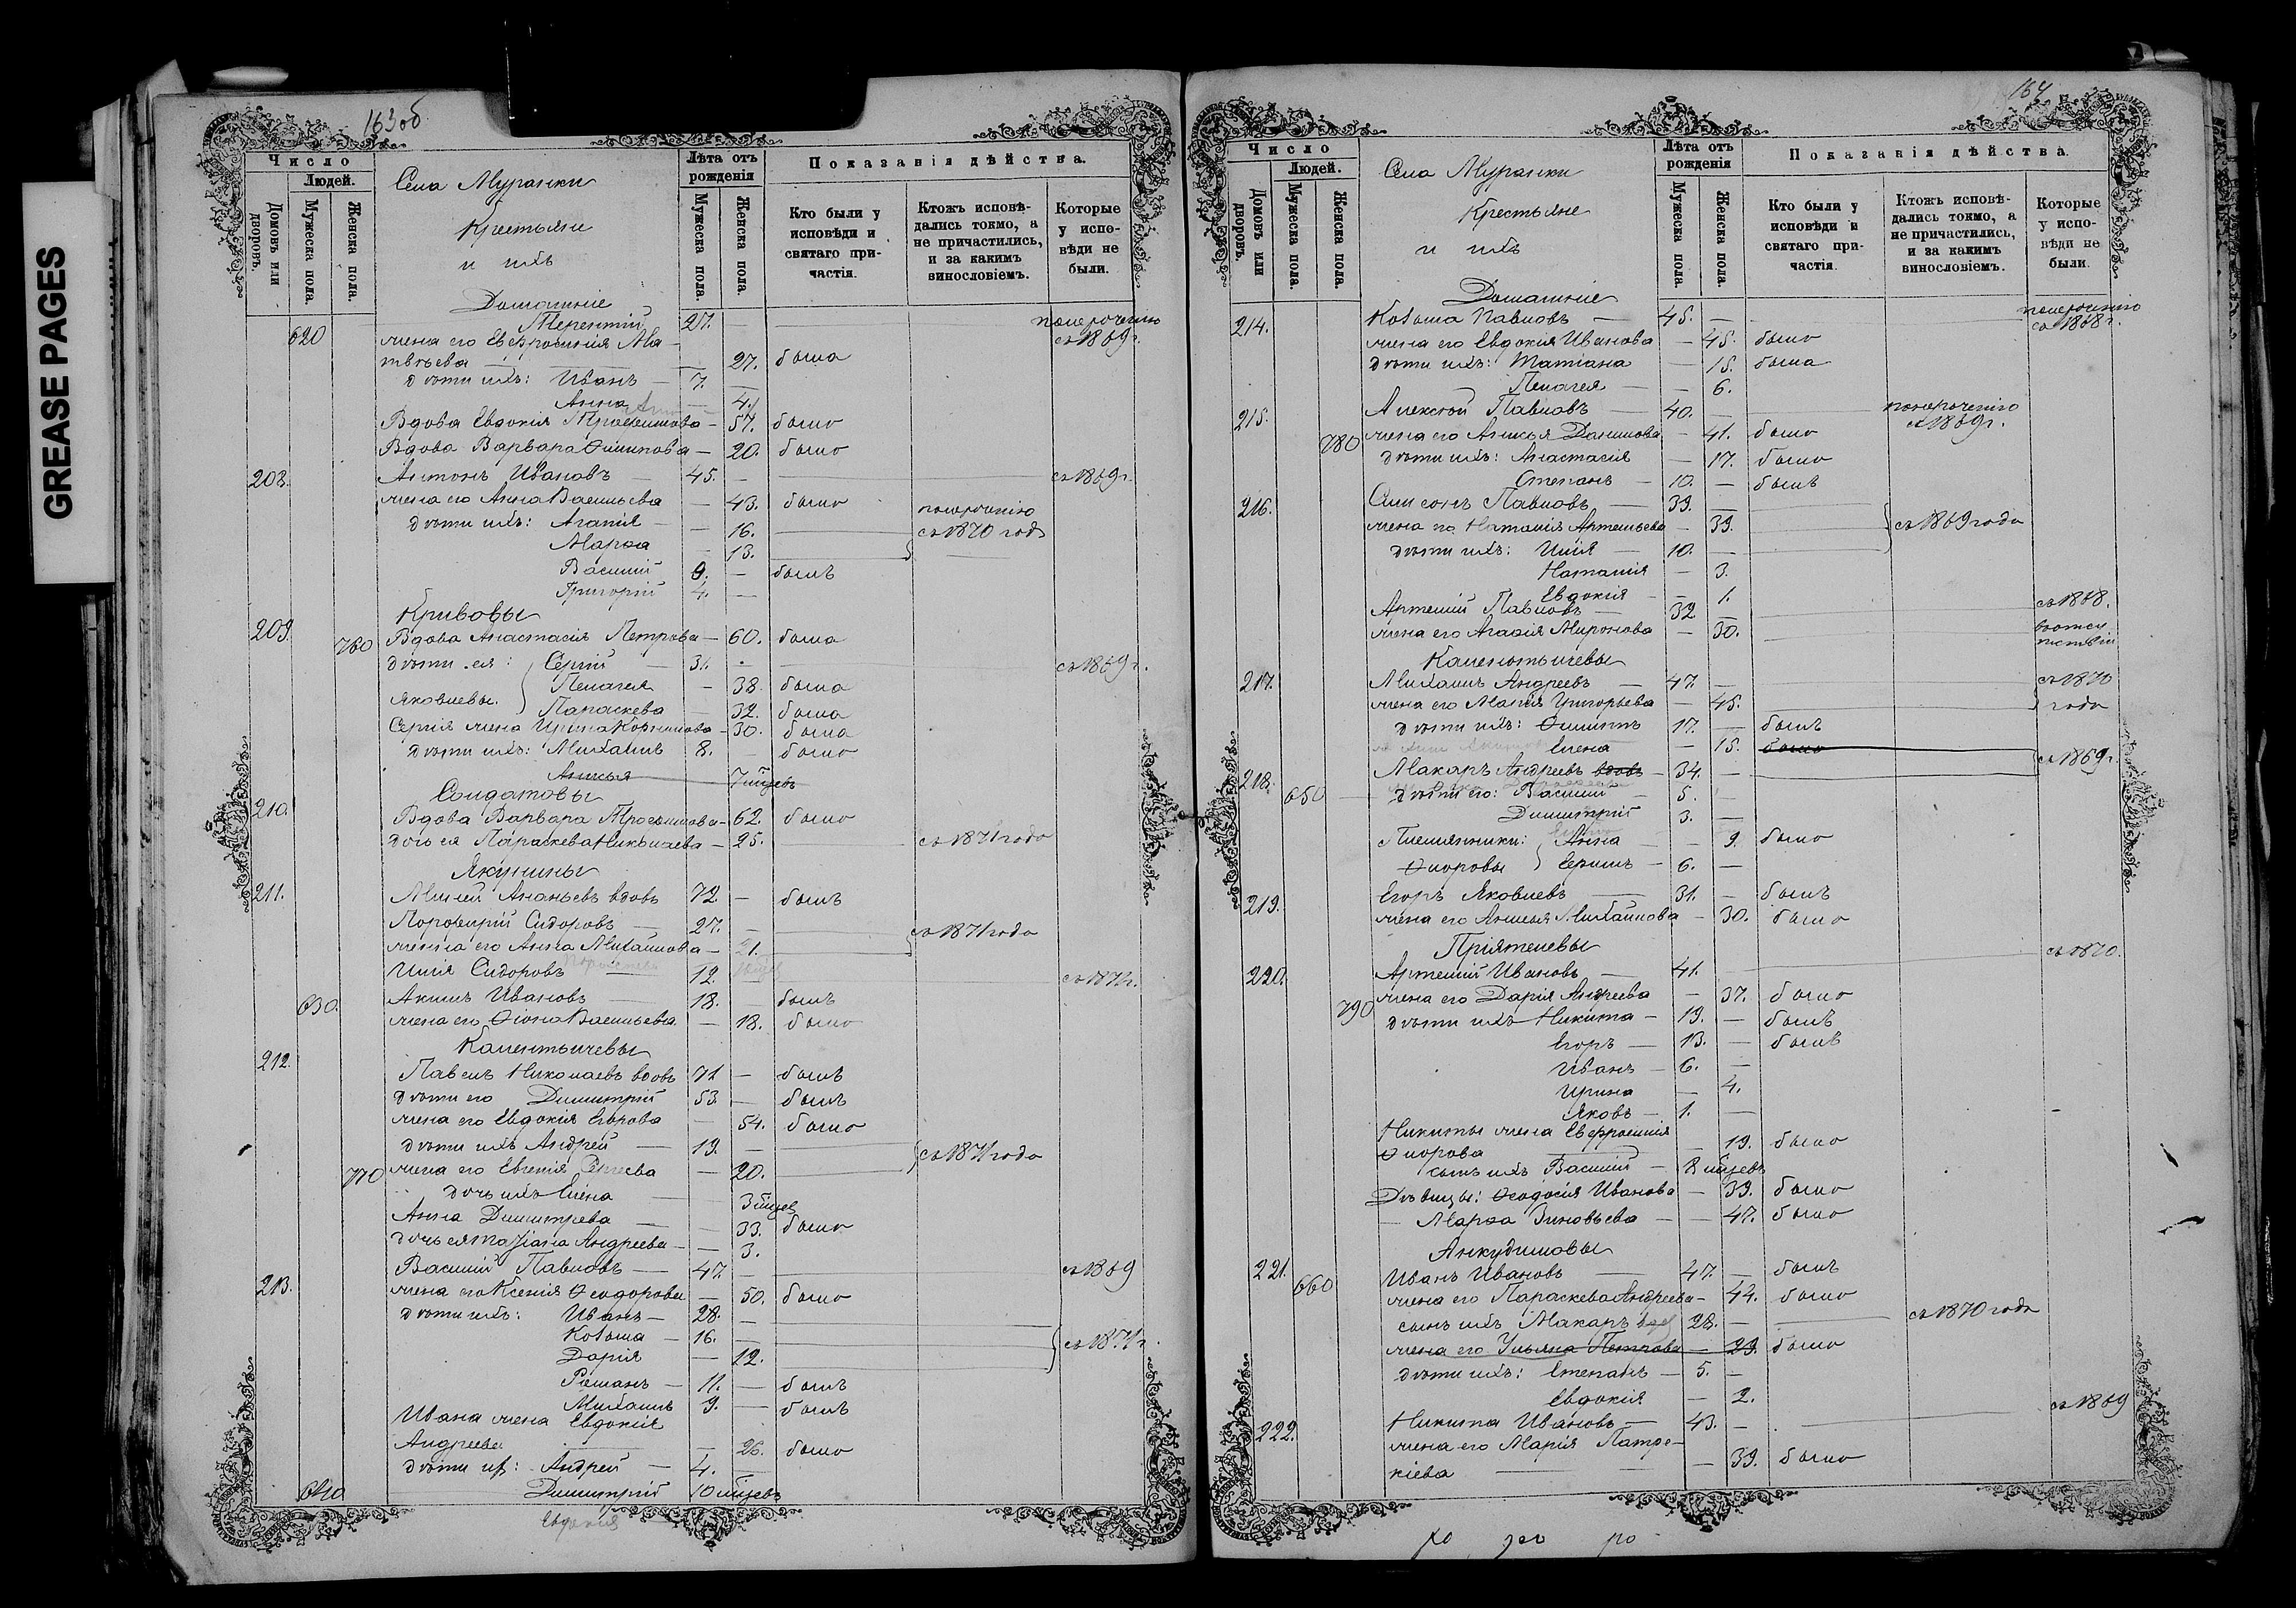 GREASE PAGES
163об
Число
Людей.
Домовъ или дворовъ.
Мужеска пола.
Женска пола.
Села Муранки
Крестьяне
и ихъ
Домашніе
Лѣта отъ рожденія
Мужеска пола.
Женска пола.
Показанія дѣйства.
Кто были у исповѣди и святаго причастія.
Ктожъ исповѣдались токмо, а не причастились, и за какимъ винословіемъ.
Которые у исповѣди не были.
620 Терентій 27. — понерочению съ 1869 г.
жена его Евфросинія Ма-
твѣева — 27. была
дѣти ихъ: Иванъ — 7. —
Анна — 4.
Вдова Евдокія Трофимова — 57. была
Вдова Варвара Филипова — 20. была
208. Антонъ Ивановъ — 45. — съ 1869 г.
жена его Анна Васильева — 43. была
дѣти ихъ: Агапія — 16. понерочению съ 1870 года
Марѳа — 13.
Василій 9. — былъ
Григорій 4. —
Кривовы
209. 760 Вдова Анастасія Петрова — 60. была
дѣти ея: Сергій — 31. — съ 1869 г.
Яковлевы. Пелагея — 38. была
Параскева — 32. была
Сергія жена Ирина Корнилова — 30. была
дѣти ихъ: Михаилъ 8. — былъ
Анисья 7 мѣсяц
Солдатовы
210. Вдова Варвара Трофимова — 62. была
дочь ея Параскева Николаева — 25. съ 1871 года
Якунины
211. Миней Ананьевъ вдовъ 72. — былъ
Порфирій Сидоровъ — 27. — съ 1871 года
жена его Анна Михайлова — 21.
Илія Сидоровъ 12. — съ 1871 г.
630. Акимъ Ивановъ 18. — былъ
жена его Ѳіона Васильева — 18. была
Калентьичевы
212. Павелъ Николаевъ вдовъ 71 — былъ
дѣти его Димитрій 53. — былъ
жена его Евдокія Егорова — 54. была
дѣти ихъ Андрей — 19. — съ 1871 года
770 жена его Евгенія Сергеева — 20.
дочь ихъ Елена 3 мѣсяц
Анна Димитрева — 33. была
дочь ея Татіана Андреева — 3.
213. Василій Павловъ — 47. — съ 1869
жена его Ксенія Ѳеодорова — 50. была
дѣти ихъ: Иванъ — 28. —
Козьма — 16. — съ 1871 г.
Дарія — 12.
Романъ — 11. — былъ
Михаилъ 9. — былъ
Ивана жена Евдокія
Андреева — 26. была
дѣти их: Андрей — 4. —
640 Димитрій 10 мѣсяц
Евдокія
164
Число
Людей.
Домовъ или дворовъ.
Мужеска пола.
Женска пола.
Села Муранки
Крестьяне
и ихъ
Домашніе
Лѣта отъ рожденія
Мужеска пола.
Женска пола.
Показанія дѣйства.
Кто были у исповѣди и святаго причастія.
Ктожъ исповѣдались токмо, а не причастились, и за какимъ винословіемъ.
Которые у исповѣди не были.
214. Козьма Павловъ — 45. — понерочению съ 1868 г.
жена его Евдокія Иванова — 45. была
дѣти ихъ: Татіана — 15. была
Пелагея — 6.
215. Алексѣй Павловъ — 40. — понерочению съ 1869 г.
780 жена его Анисья Данилова — 41. была
дѣти ихъ: Анастасія — 17. была
Степанъ — 10. — былъ
216. Симеонъ Павловъ — 39. —
жена его Наталія Артемьева — 39. съ 1869 года
дѣти ихъ: Илія — 10. —
Наталія — 3.
Евдокія — 1.
Артемій Павловъ — 32 — съ 1868.
жена его Агафія Миронова — 30. въ отсутствіи
Калентьичевы
217. Михаилъ Андреевъ — 47. — съ 1870
жена его Марія Григорьева — 45. года
дѣти ихъ: Филиппъ 17. — былъ
Елена — 15. была
218. Макаръ Андреевъ вдовъ — 34. — съ 1869 г.
650 дѣти его: Василій — 5. —
Димитрій 3. —
Племянники: Анна — 9. была
Ѳлоровы Ермилъ — 6. —
219. Егоръ Яковлевъ — 31. — былъ
жена его Анисья Михайлова — 30. была
Пріятелевы
220. Артемій Ивановъ — 41. — съ 1870.
жена его Дарія Андреева — 37. была
790 дѣти ихъ Никита — 19. — былъ
Егоръ — 13. — былъ
Иванъ — 6. —
Ирина — 4.
Яковъ — 1. —
Никиты жена Евфросинія
Ѳлорова — 19. была
сынъ ихъ Василій — 8 мѣсяцевъ
Дѣвицы: Ѳеодосія Иванова — 39. была
Марѳа Зиновьева — 47. была
Анкудимовы
221. Иванъ Ивановъ — 47. — былъ
660 жена его Параскева Андреева — 44. была
сынъ ихъ Макаръ 28. — съ 1870 года
жена его Ульяна Петрова — 29. была
дѣти ихъ: Степанъ — 5. —
Евдокія — 2.
222. Никита Ивановъ — 43. — съ 1869
жена его Марія Патре-
кіева — 39. была